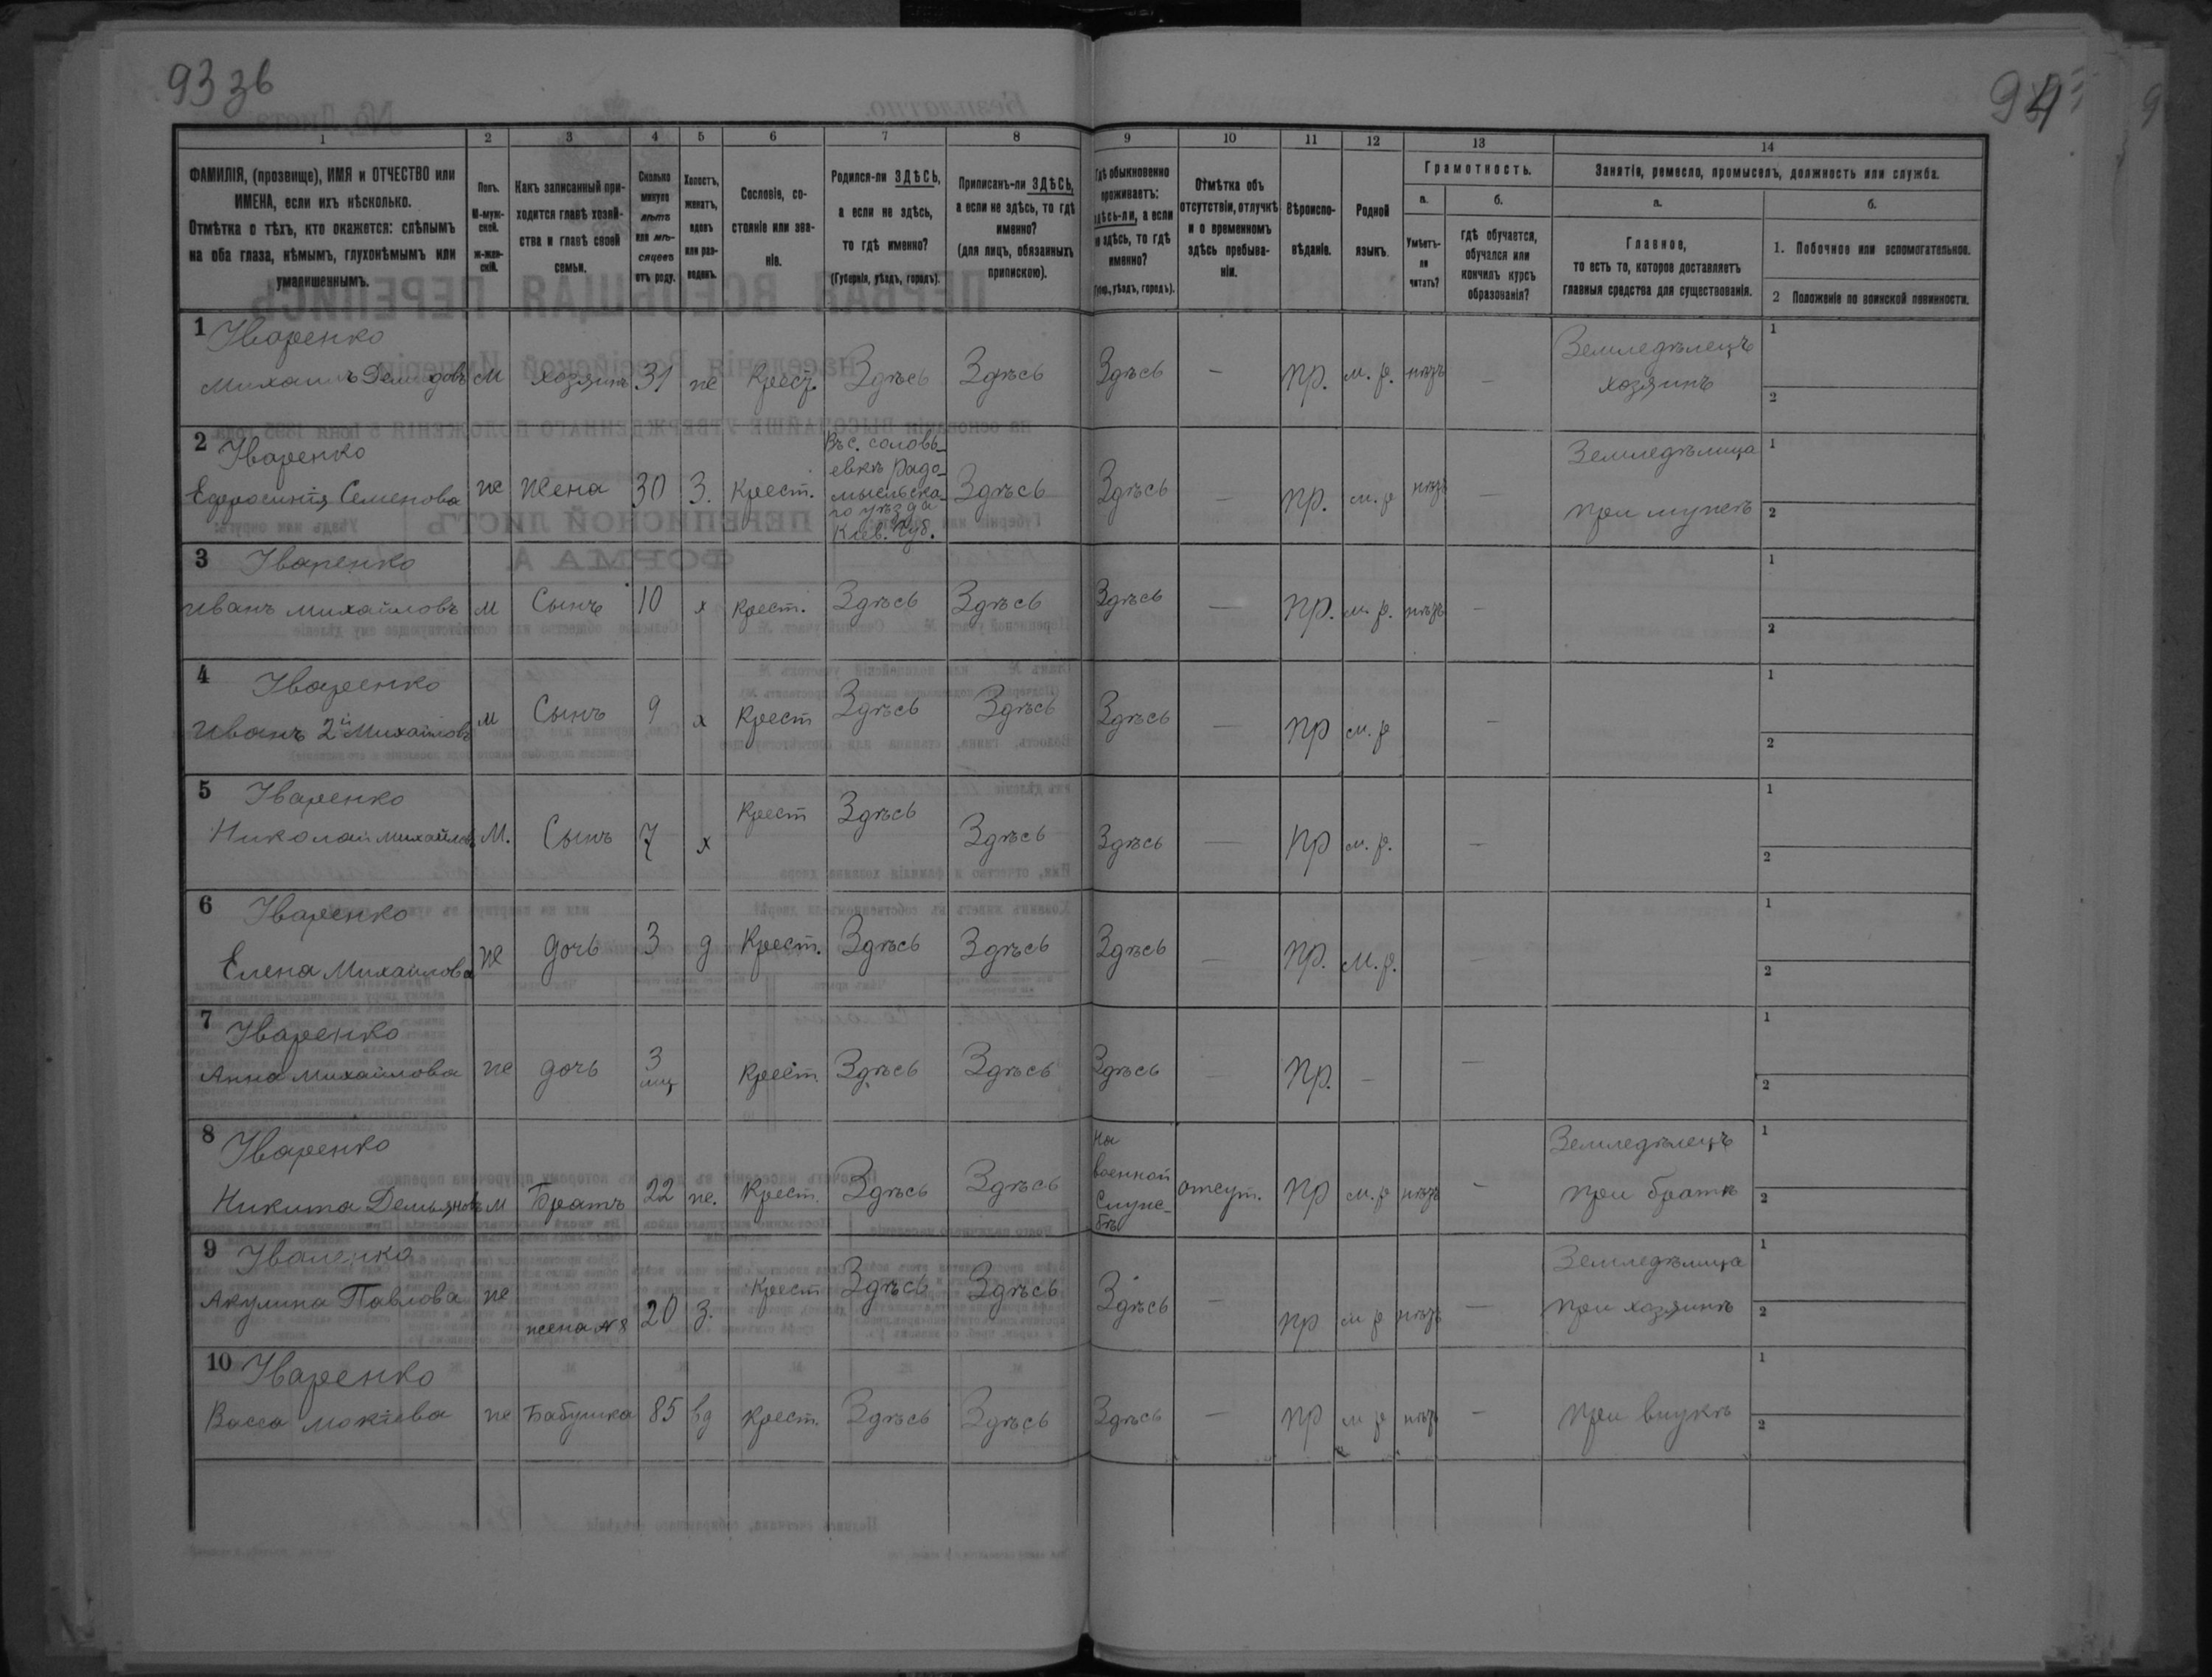 93 зв
94
1 2 3 4 5 6 7 8 9 10 11 12 13 14
ФАМИЛІЯ, (прозвище), ИМЯ и ОТЧЕСТВО или
ИМЕНА, если ихъ нѣсколько.
Отмѣтка о тѣхъ, кто окажется: слѣпымъ
на оба глаза, нѣмымъ, глухонѣмымъ или
умалишеннымъ.
Полъ.
М-муж-
ской.
Ж-жен-
скій.
Какъ записанный при-
ходится главѣ хозяй-
ства и главѣ своей
семьи.
Сколько
минуло
лѣтъ
или мѣ-
сяцевъ
отъ роду.
Холостъ,
женатъ,
вдовъ
или раз-
веденъ.
Сословіе, со-
стояніе или зва-
ніе.
Родился-ли ЗДѢСЬ,
а если не здѣсь,
то гдѣ именно?
(Губернія, уѣздъ, городъ).
Приписанъ-ли ЗДѢСЬ,
а если не здѣсь, то гдѣ
именно?
(для лицъ, обязанныхъ
припискою).
Гдѣ обыкновенно
проживаетъ:
здѣсь-ли, а если
не здѣсь, то гдѣ
именно?
(Губ., уѣздъ, городъ).
Отмѣтка объ
отсутствіи, отлучкѣ
и о временномъ
здѣсь пребыва-
ніи.
Вѣроиспо-
вѣданіе.
Родной
языкъ.
Грамотность.
а.
Умѣетъ-
ли
читать?
б.
гдѣ обучается,
обучался или
кончилъ курсъ
образованія?
Занятія, ремесло, промыселъ, должность или служба.
а.
Главное,
то есть то, которое доставляетъ
главныя средства для существованія.
б.
1. Побочное или вспомогательное.
2 Положеніе по воинской повинности.
1 Иваренко
Михаилъ Демидовъ М хозяинъ 31 же Крест. Здѣсь Здѣсь Здѣсь — пр. м. р. нѣтъ —
Земледѣлецъ
хозяинъ
1
2
2 Иваренко
Ефросинія Семенова же Жена 30 З. Крест.
Въ с. соловь-
евкѣ радо-
мысльска-
го уѣзда
Кіев. Губ.
Здѣсь Здѣсь — пр. м. р нѣтъ —
Земледѣлица
при мужѣ
1
2
3 Иваренко
Иванъ Михайловъ м Сынъ 10 х Крест. Здѣсь Здѣсь Здѣсь — пр. м. р. нѣтъ —
1
2
4 Иваренко
Иванъ 2й Михайловъ м Сынъ 9 х Крест Здѣсь Здѣсь Здѣсь — пр м. р —
1
2
5 Иваренко
Николай Михайловъ М. Сынъ 7 х Крест Здѣсь Здѣсь Здѣсь — пр м. р. —
1
2
6 Иваренко
Елена Михайлова же дочь 3 д Крест. Здѣсь Здѣсь Здѣсь — пр. м. р. —
1
2
7 Иваренко
Анна Михайлова же дочь 3 мц Крест. Здѣсь Здѣсь Здѣсь — пр. — —
1
2
8 Иваренко
Никита Демьяновъ м Братъ 22 же. Крест. Здѣсь Здѣсь
На
военной
Служ-
бѣ
отсут. пр м. р нѣтъ —
Земледѣлецъ
при братѣ
1
2
9 Иваренко
Акулина Павлова же жена № 8 20 З. Крест Здѣсь Здѣсь Здѣсь — пр м р нѣтъ —
Земледѣлица
при хозяинѣ
1
2
10 Иваренко
Васса Мокіева же Бабушка 85 вд Крест. Здѣсь Здѣсь Здѣсь — пр м р нѣтъ —
при внукѣ
1
2